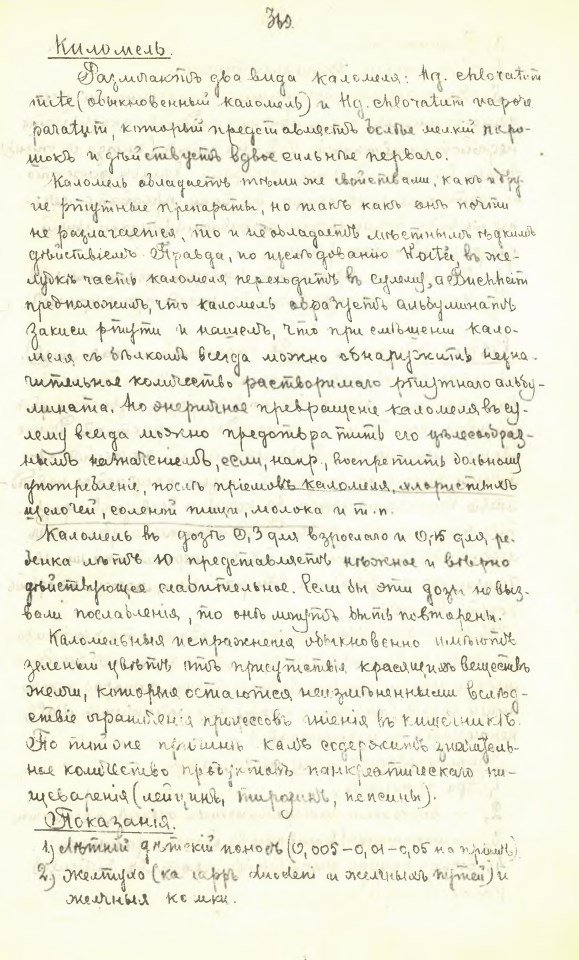 369.
Киломель.
Различаютъ два вида каломеля: Hg. chloratum
mite (обыкновенный каломель) и Hg. chloratum vapore
paratum, который представляетъ болѣе мелкiй поро-
шокъ и дѣйствуетъ вдвое сильнѣе перваго.
Каломель обладаетъ тѣми же свойствами, какъ и дру-
гiе ртутные препараты, но такъ какъ онъ почти
не разлагается, то и не обладаетъ мѣстнымъ ѣдкимъ
дѣйствiемъ. Правда, по изслѣдованiю въ же-
лудкѣ часть каломеля переходитъ въ сулему, а Buchheim
предположилъ, что каломель образуетъ альбуминатъ
закиси ртути и нашелъ, что при смѣшенiи кало-
меля съ бѣлкомъ всегда можно обнаружить незна-
чительное количество растворимаго ртутнаго альбу-
мината. Но энергичное превращенiе каломеля въ су-
лему всегда можно предотвратить его цѣлесообраз-
нымъ назначенiемъ, если, напр., воспретить больному
употребленiе, послѣ прiемовъ каломеля, хлористыхъ
щелочей, соленой пищи, молока и т. п.
Каломель въ дозѣ 0,3 для взрослаго и 0,15 для ре-
бенка лѣтъ 10 представляетъ нѣжное и вѣрно
дѣйствующее слабительное. Если бы эти дозы не выз-
вали послабленiя, то онѣ могутъ быть повторены.
Каломельныя испражненiя обыкновенно имѣютъ
зеленый цвѣтъ отъ присутствiя красящихъ веществъ
желчи, которыя остаются неизмѣненными вслѣд-
ствiе ограниченiя процессовъ гнiенiя въ кишечникѣ.
По той же причинѣ калъ содержитъ значитель-
ное количество продуктовъ панкреатическаго пи-
щеваренiя (лейцинъ, тирозинъ, пепсины).
Показанiя.
1) Лѣтнiй дѣтскiй поносъ (0,005–0,01–0,05 на прiемъ)
2) Желтуха (катарръ duodeni и желчныхъ путей) и
желчныя комки.